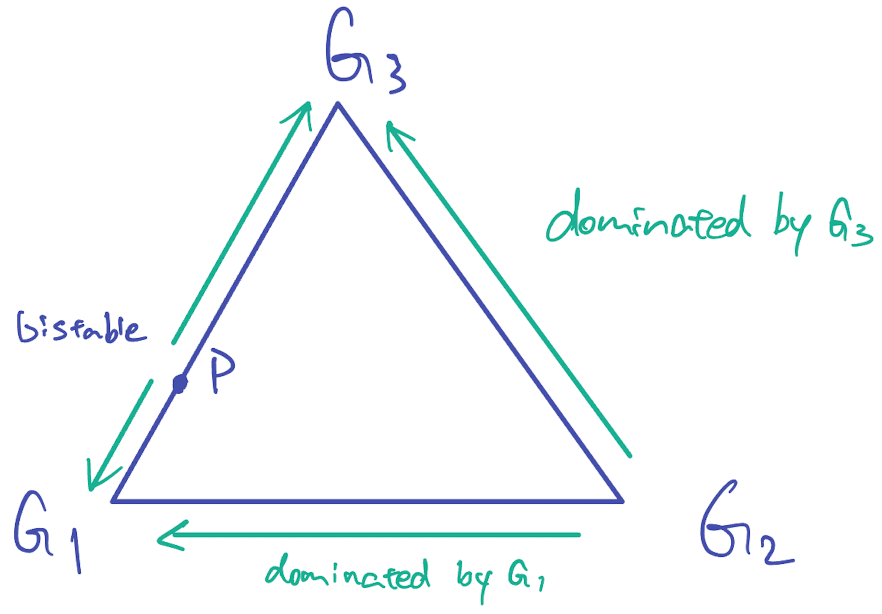 G3
dominated by G3
bistable
P
G1
G2
dominated by G1